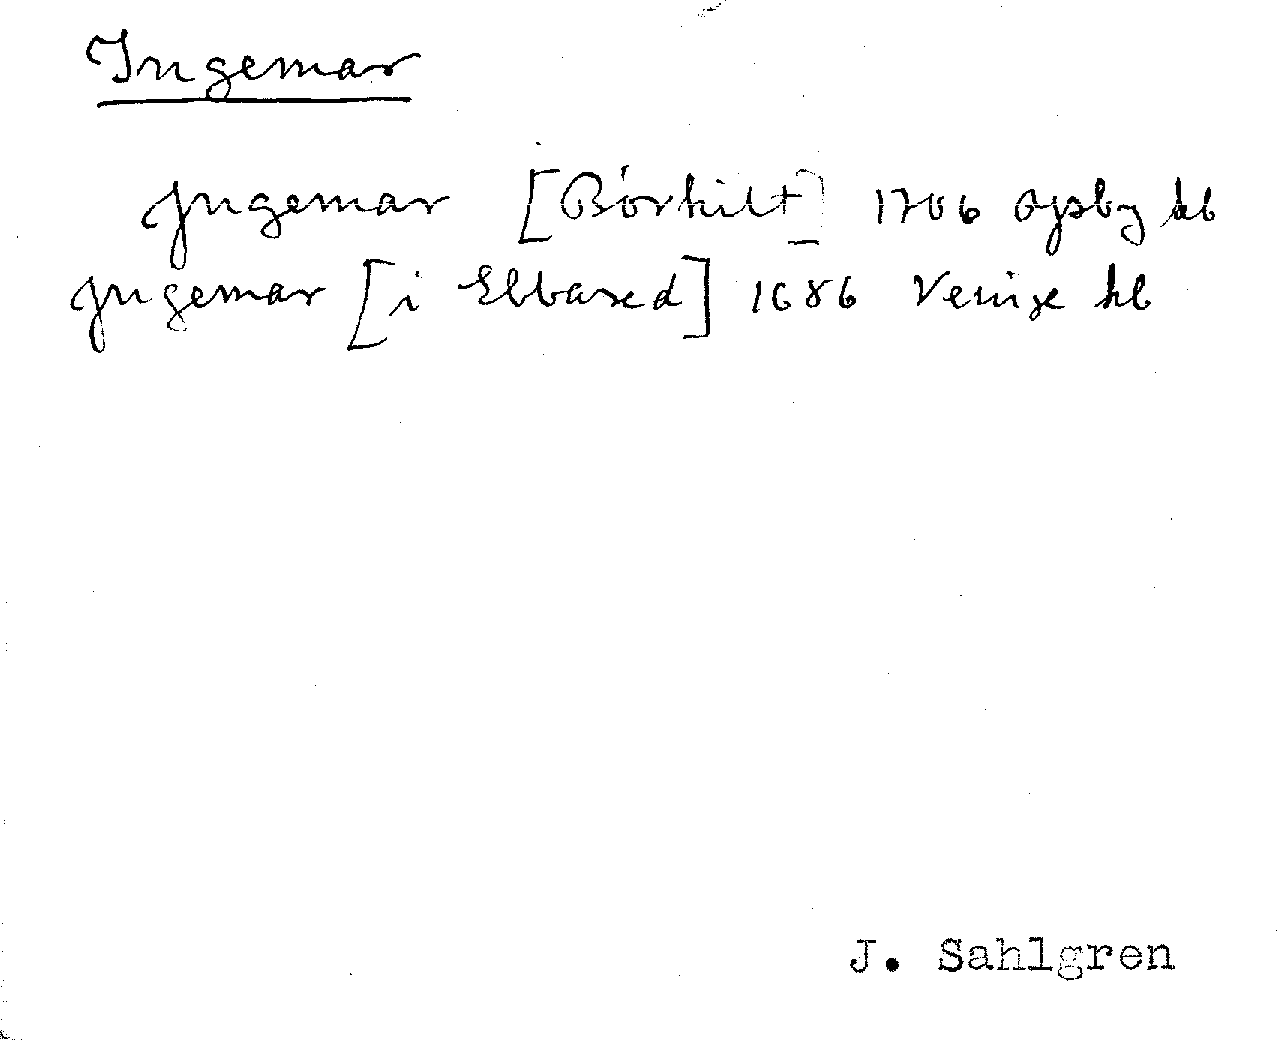 Ingemar
Ingemar [Börhilt] 1706 Ousby kb
Ingemar [i Ebbared] 1686 Veinge kb
J. Sahlgren